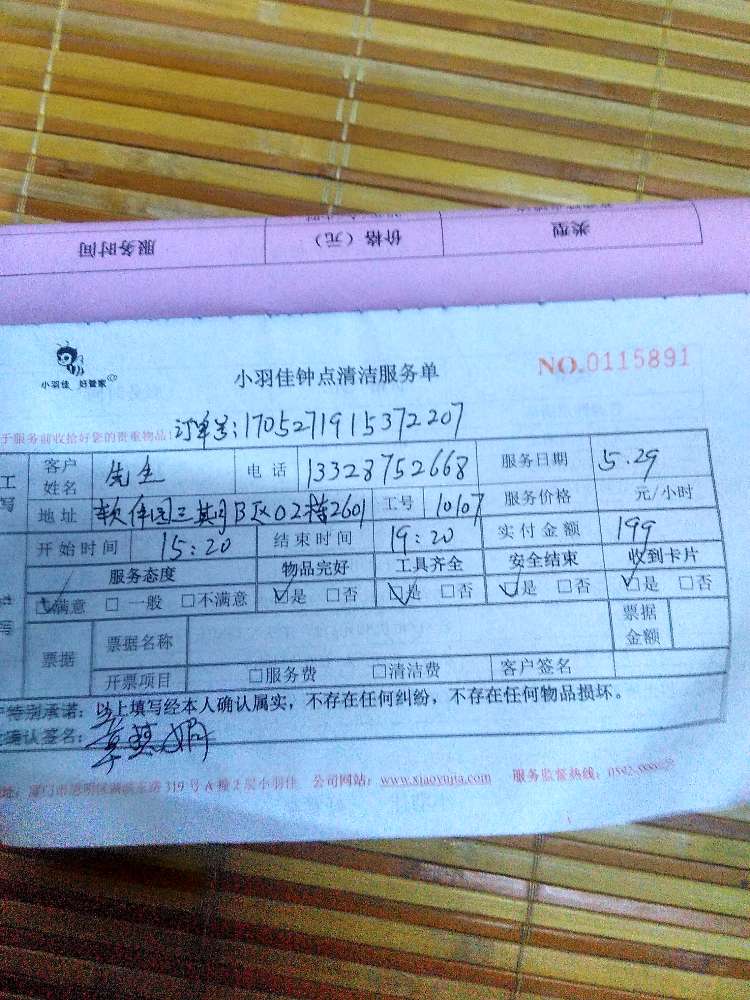 服务时间 价格（元） 类型
小羽佳 好管家
小羽佳钟点清洁服务单
NO.0115891
于服务前收拾好您的贵重物品!
订单号:1705271915372207
客户姓名 先生 电话 13328752668 服务日期 5.29
地址 软件园三期B区02栋2601 工号 10107 服务价格 元/小时
开始时间 15:20 结束时间 19:20 实付金额 199
服务态度 物品完好 工具齐全 安全结束 收到卡片
☑满意 □一般 □不满意 ☑是 □否 ☑是 □否 ☑是 □否 ☑是 □否
票据 票据名称 票据金额
开票项目 □服务费 □清洁费 客户签名
特别承诺：以上填写经本人确认属实，不存在任何纠纷，不存在任何物品损坏。
确认签名：
319号A幢2层小羽佳 公司网站：www.xiaoyujia.com 服务监督热线：0592-